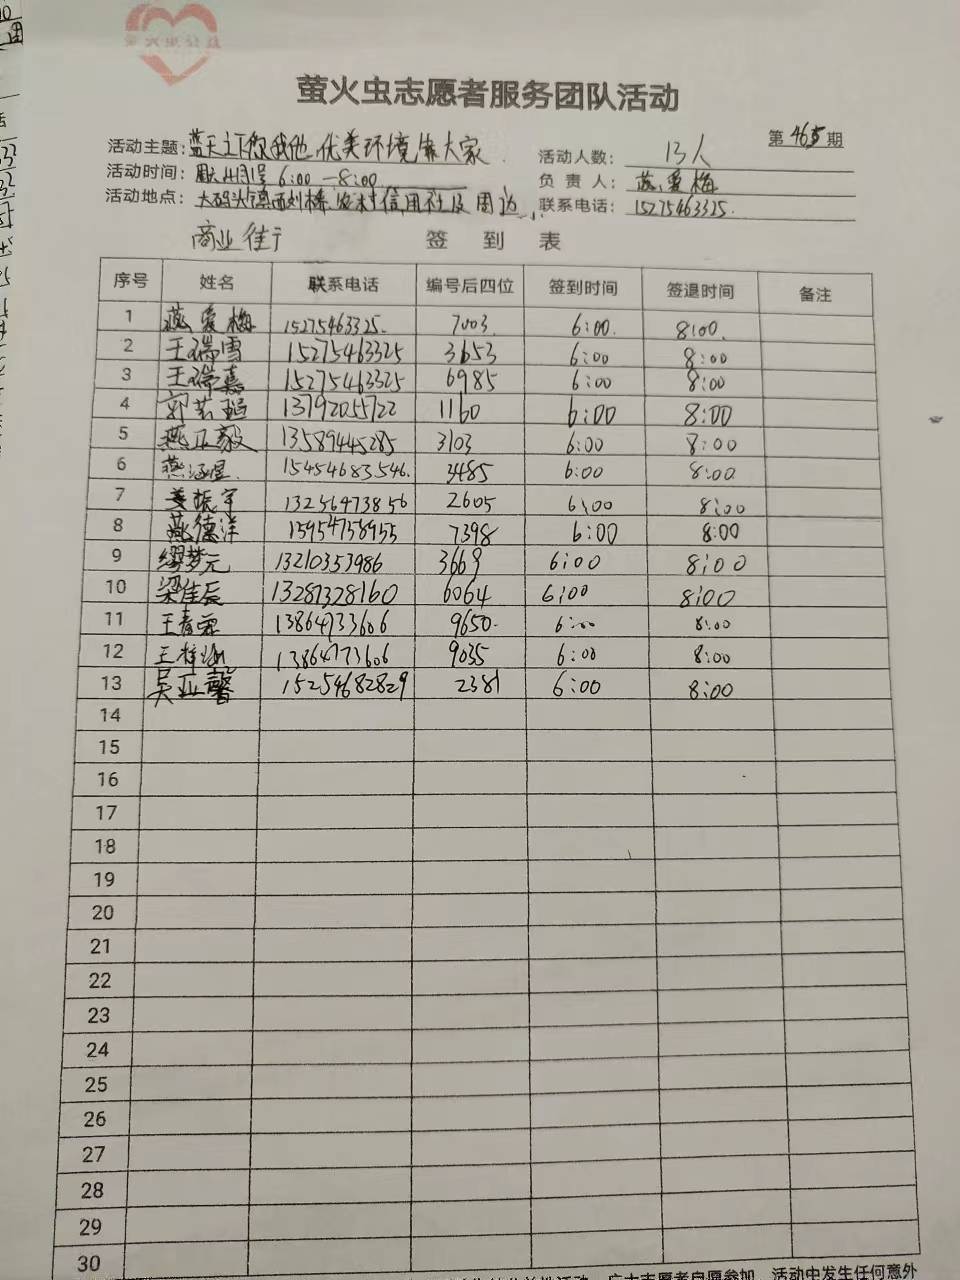 萤火虫志愿者服务团队活动
第 465 期
活动主题：蓝天之下你我他，优美环境靠大家
活动人数：13人
活动时间： 6:00—8:00
负责人：燕爱梅
活动地点：大码头镇西刘桥农村信用社及周边
联系电话：15275463325.
商业街
签到表
序号 姓名 联系电话 编号后四位 签到时间 签退时间 备注
1 燕爱梅 15275463325. 7003 6:00. 8:00.
2 王瑞雪 15275463325 3653 6:00 8:00
3 王瑞嘉 15275463325 6985 6:00 8:00
4 郭若 13792055722 1160 6:00 8:00
5 燕正毅 13589445285 3103 6:00 8:00
6 燕涵昱 15454683546. 3485 6:00 8:00
7 姜振宇 13256473856 2605 6:00 8:00
8 燕德洋 15954758955 7398 6:00 8:00
9 缪梦元 13210353986 3669 6:00 8:00
10 梁佳辰 13287328160 6064 6:00 8:00
11 王春霖 13864733606 9650. 6:00 8:00
12 王梓涵 13864773606 9035 6:00 8:00
13 吴亚馨 15254682829 2381 6:00 8:00
14
15
16
17
18
19
20
21
22
23
24
25
26
27
28
29
30
广大志愿者自愿参加，活动中发生任何意外